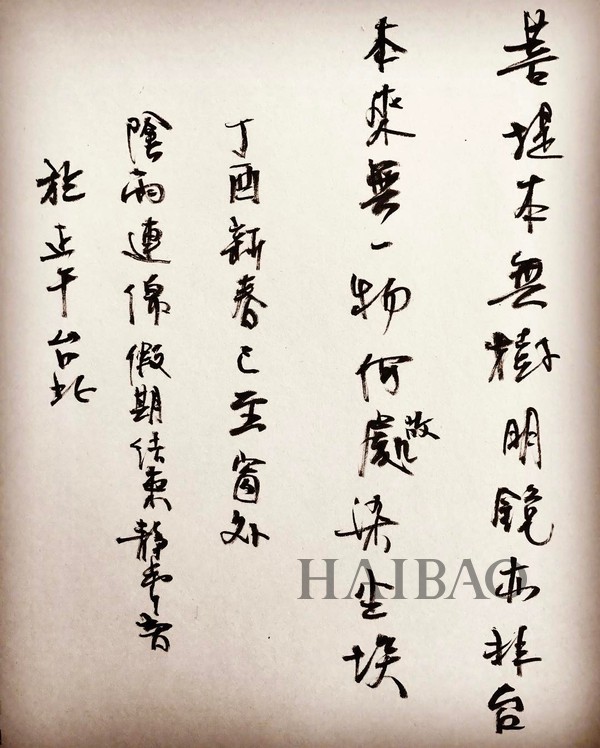 菩堤本無樹明鏡亦非台
本來無一物何處染尘埃
丁酉新春已至窗外
陰雨連綿假期结束靜
於正午台北
HAIBAO